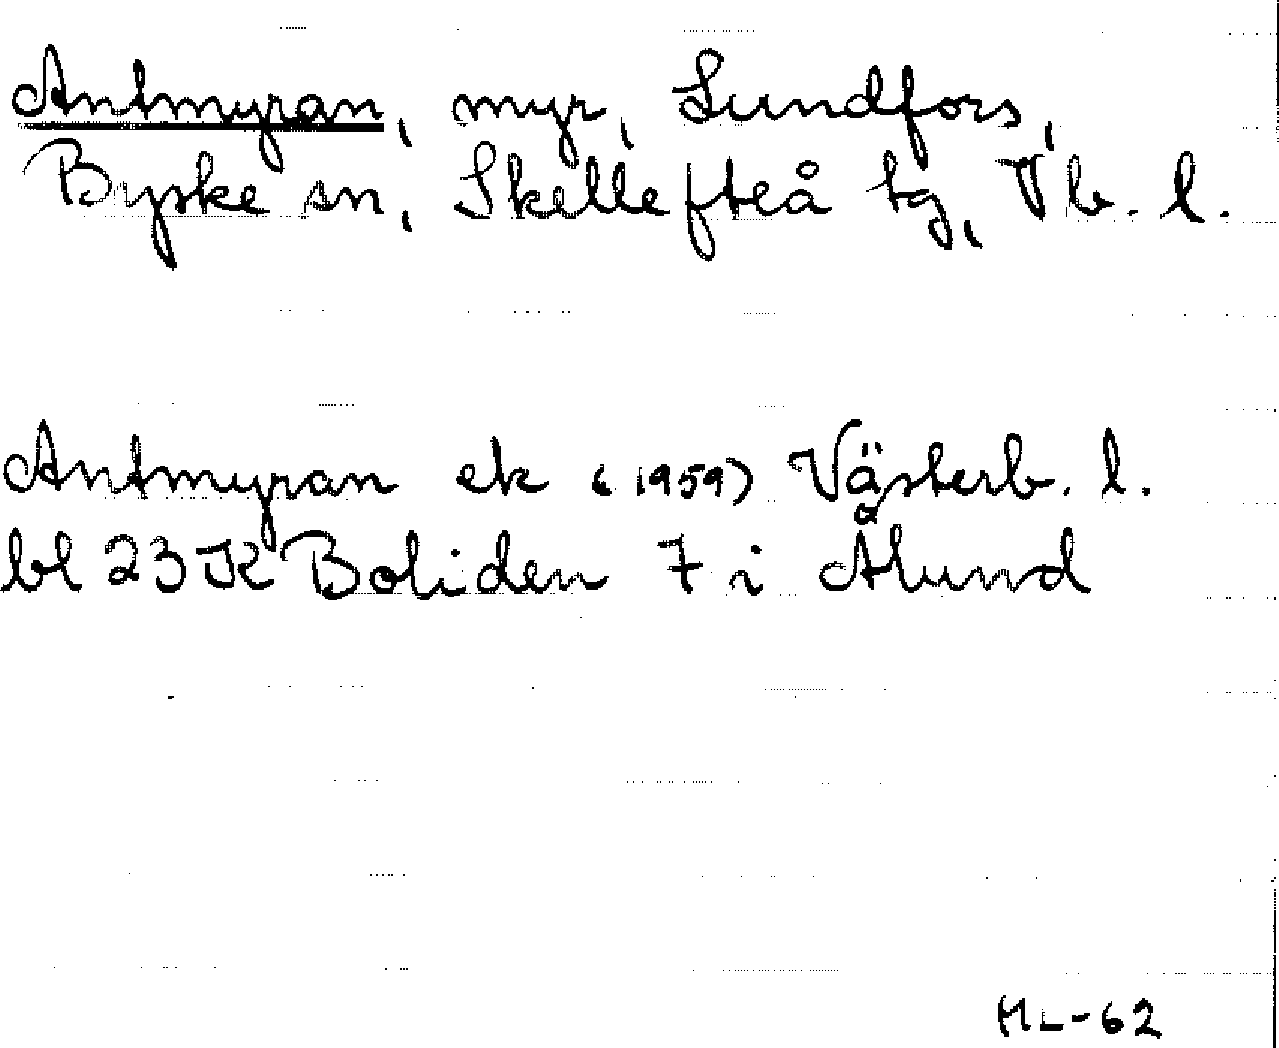 Antmyran, myr, Lundfors,
Byske sn, Skellefteå tg, Vb. l.
Antmyran ek (1959) Västerb. l.
bl 23 K Boliden 7 i Ålund
HL-62